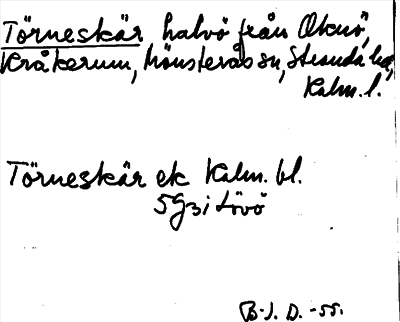 Törneskär halvö från Oknö,
Kråkerum, Mönsterås sn, Stranda hd,
Kalm. l.
Törneskär ek Kalm. bl.
5g3i Lövö
B-J. D. -55.